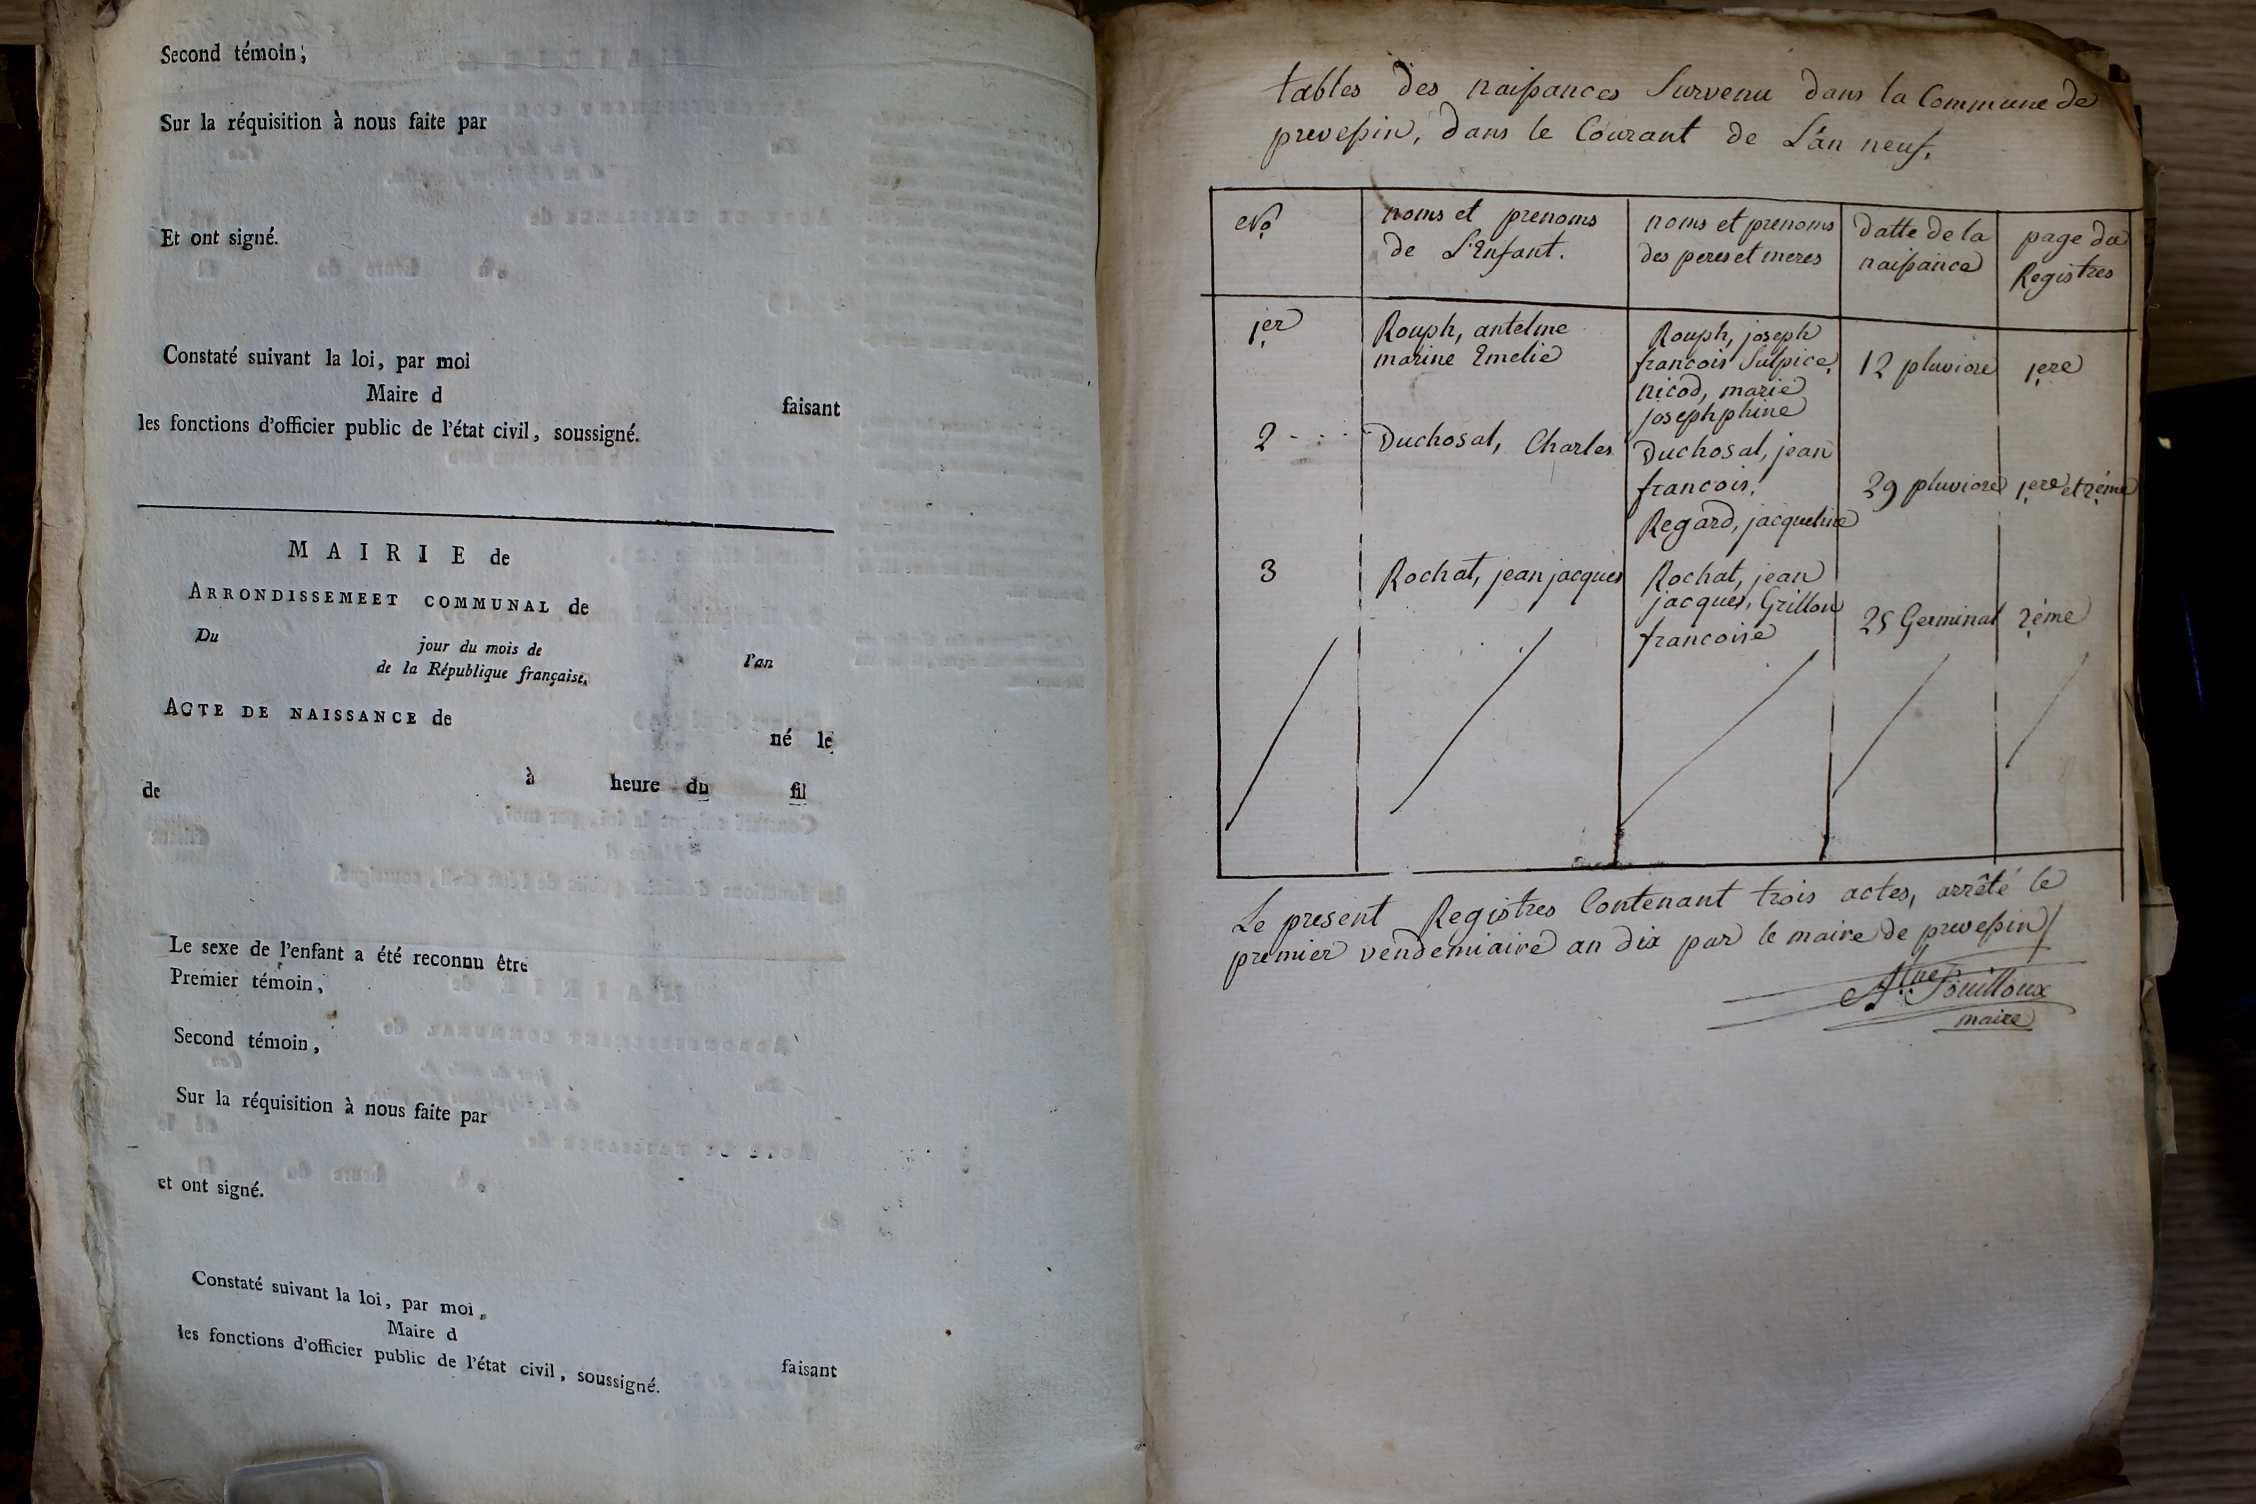 Second témoin,
Sur la réquisition à nous faite par
Et ont signé.
Constaté suivant la loi, par moi
Maire d
faisant
les fonctions d'officier public de l'état civil, soussigné.
MAIRIE de
ARRONDISSEMEET COMMUNAL de
Du
jour du mois de
l'an
de la République française,
ACTE DE NAISSANCE de
né le
à heure du fil
de
Le sexe de l'enfant a été reconnu être
Premier témoin,
Second témoin,
Sur la réquisition à nous faite par
et ont signé.
Constaté suivant la loi, par moi,
Maire d
faisant
les fonctions d'officier public de l'état civil, soussigné.
tables des naissances Survenu dans la Commune de
prevessin, dans le Courant de L'an neuf.
No
noms et prenoms
de L'Enfant.
noms et prenoms
des peres et meres
datte de la
naissance
page du
Registres
1er
Rouph, antelme
marine Emelie
Rouph, joseph
francois Sulpice,
nicod, marie
josephphine
12 pluviose
1ere
2
Duchosal, Charles
Duchosal, jean
francois,
Regard, jacqueline
29 pluviose
1ere et 2éme
3
Rochat, jean jacques
Rochat, jean
jacques, Grillon
francoise
25 Germinal
2éme
Le present Registres Contenant trois actes, arrêté le
premier vendemiaire an dix par le maire de prevessin
Fouilloux
maire